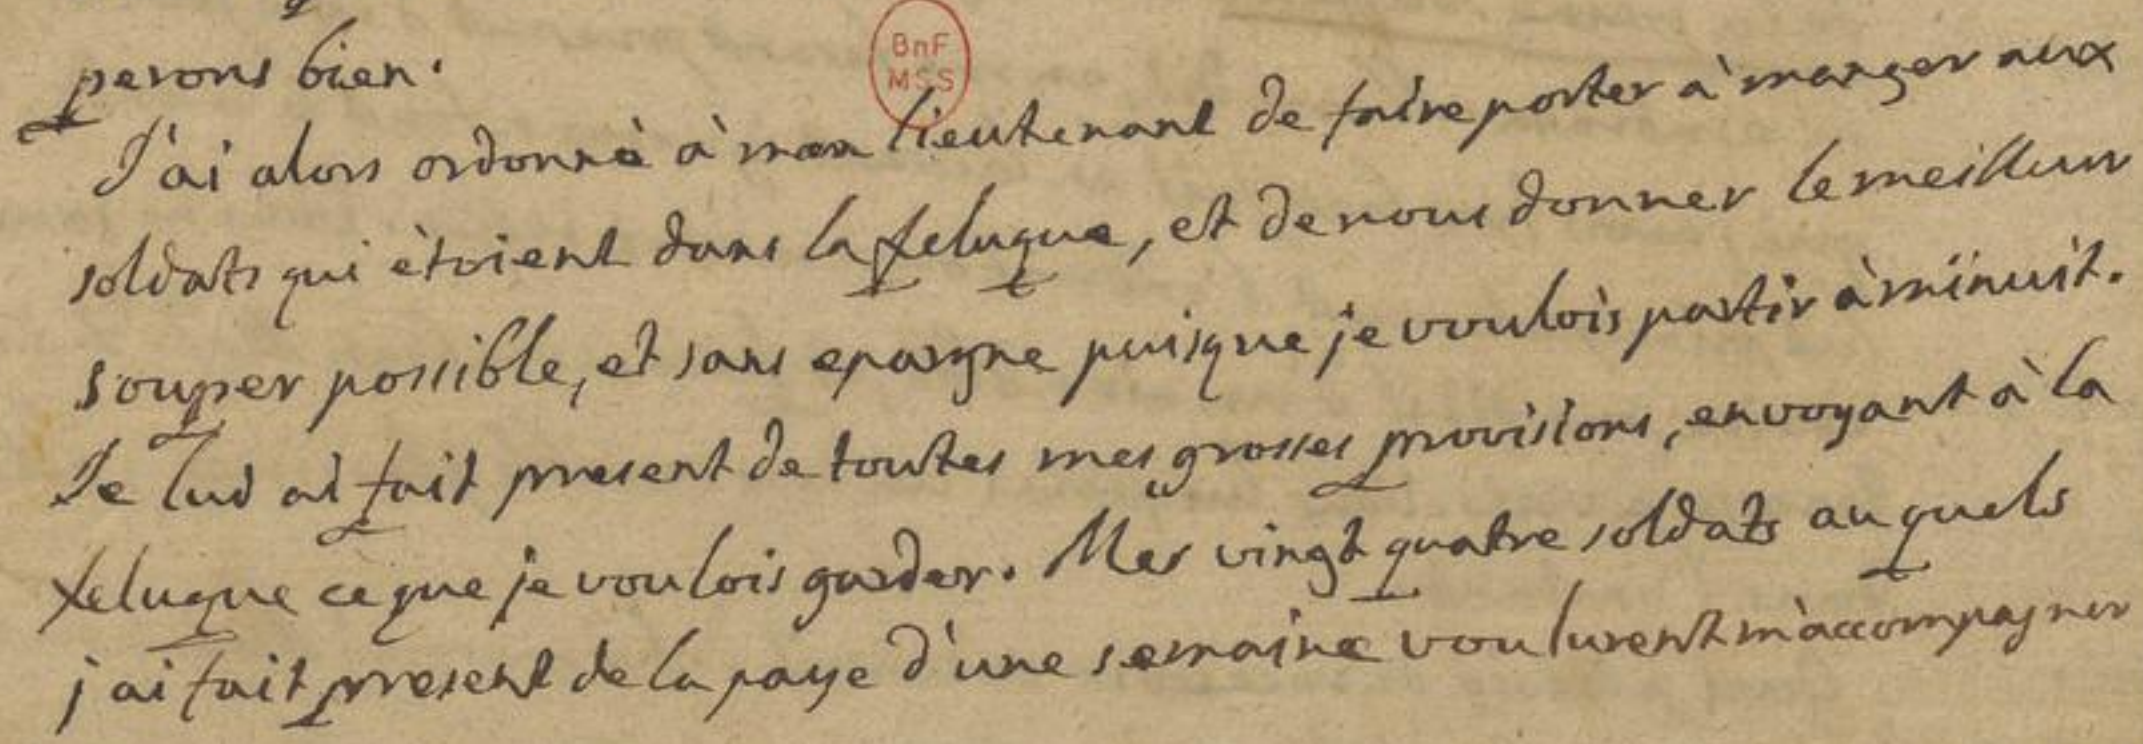 perons bien.
BnF
MSS
J'ai alors ordonnè à mon lieutenant de faire porter à manger aux
soldats qui ètoient dans la felugue, et de nous donner le meilleur
souper possible, et sans epargne puisque je voulois partir à minuit.
Je lui ai fait present de toutes mes grosses provisions, envoyant à la
felugue ce que je voulois garder. Mes vingt quatre soldats auquels
j'ai fait present de la paye d'une semaine voulurent m'accompagner